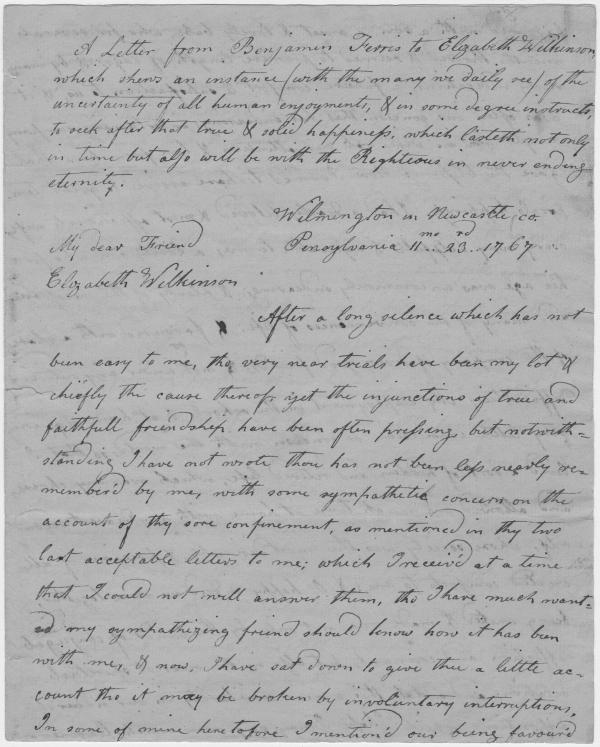 A Letter from Benjamin Ferris to Elizabeth Wilkinson,
which shews an instance (with the many we daily see) of the
uncertainty of all human enjoyments, & in some degree instructs,
to seek after that true & solid happiness, which lasteth not only
in time but also will be with the Righteous in never ending
eternity.
Wilmington in Newcastle, co.
My dear Friend
Pensylvania 11mo.. 23rd.. 1767
Elizabeth Wilkinson
After a long silence which has not
been easy to me, tho very near trials have been my lot &
chiefly the cause thereof; yet the injunctions of true and
faithfull friendship have been often pressing, but notwith-
standing I have not wrote thou has not been less nearly re-
memberd by me, with some sympathetic concern on the
account of thy sore confinement, as mentioned in thy two
last acceptable letters to me; which I receiv'd at a time
that I could not well answer them, tho I have much want-
ed my sympathizing friend should know how it has been
with me, & now, I have sat down to give thee a little ac-
count tho it may be broken by involuntary interruptions.
In some of mine heretofore I mention'd our being favour'd